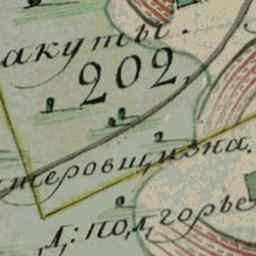 акуты.
202.
теровщизна.
Д: Подгорье